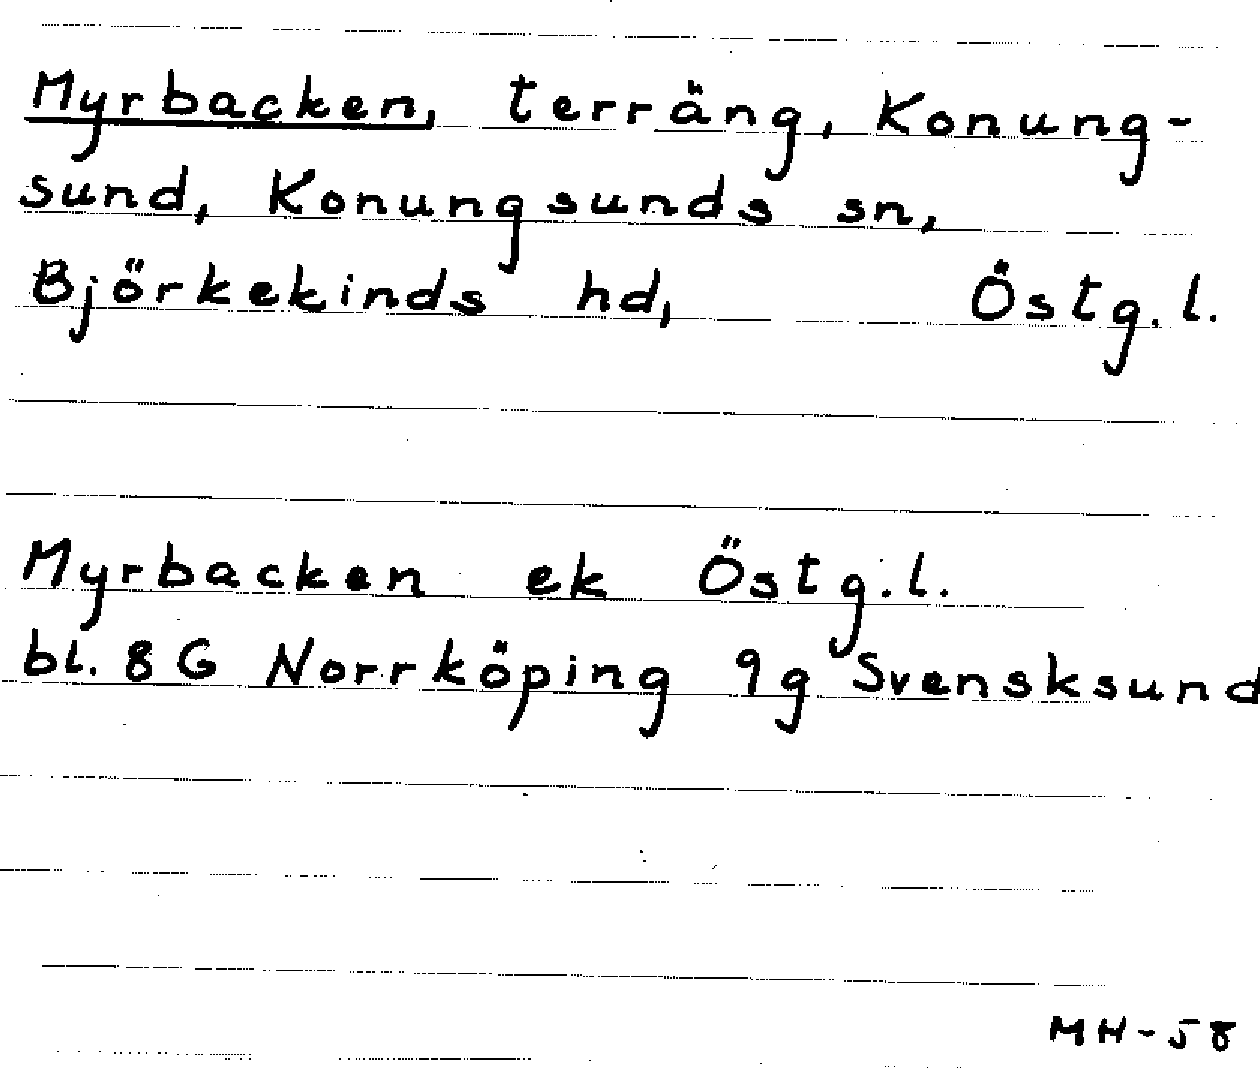 Myrbacken, terräng, Konung-
sund, Konungsunds sn,
Björkekinds hd, Östg.l.
Myrbacken ek Östg.l.
bl. 8 G Norrköping 9g Svensksund
MH-58